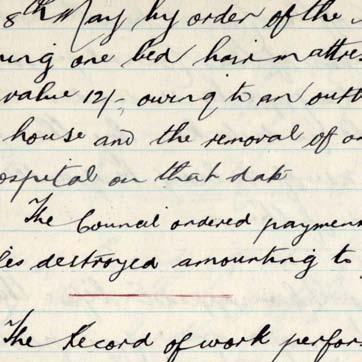 8th May by order of the
one bed hair mattres
value 12/-, owing to an outb
house and the removal of
ospital on that date
The Council ordered paymen
les destroyed amounting to
The Record of work perfor